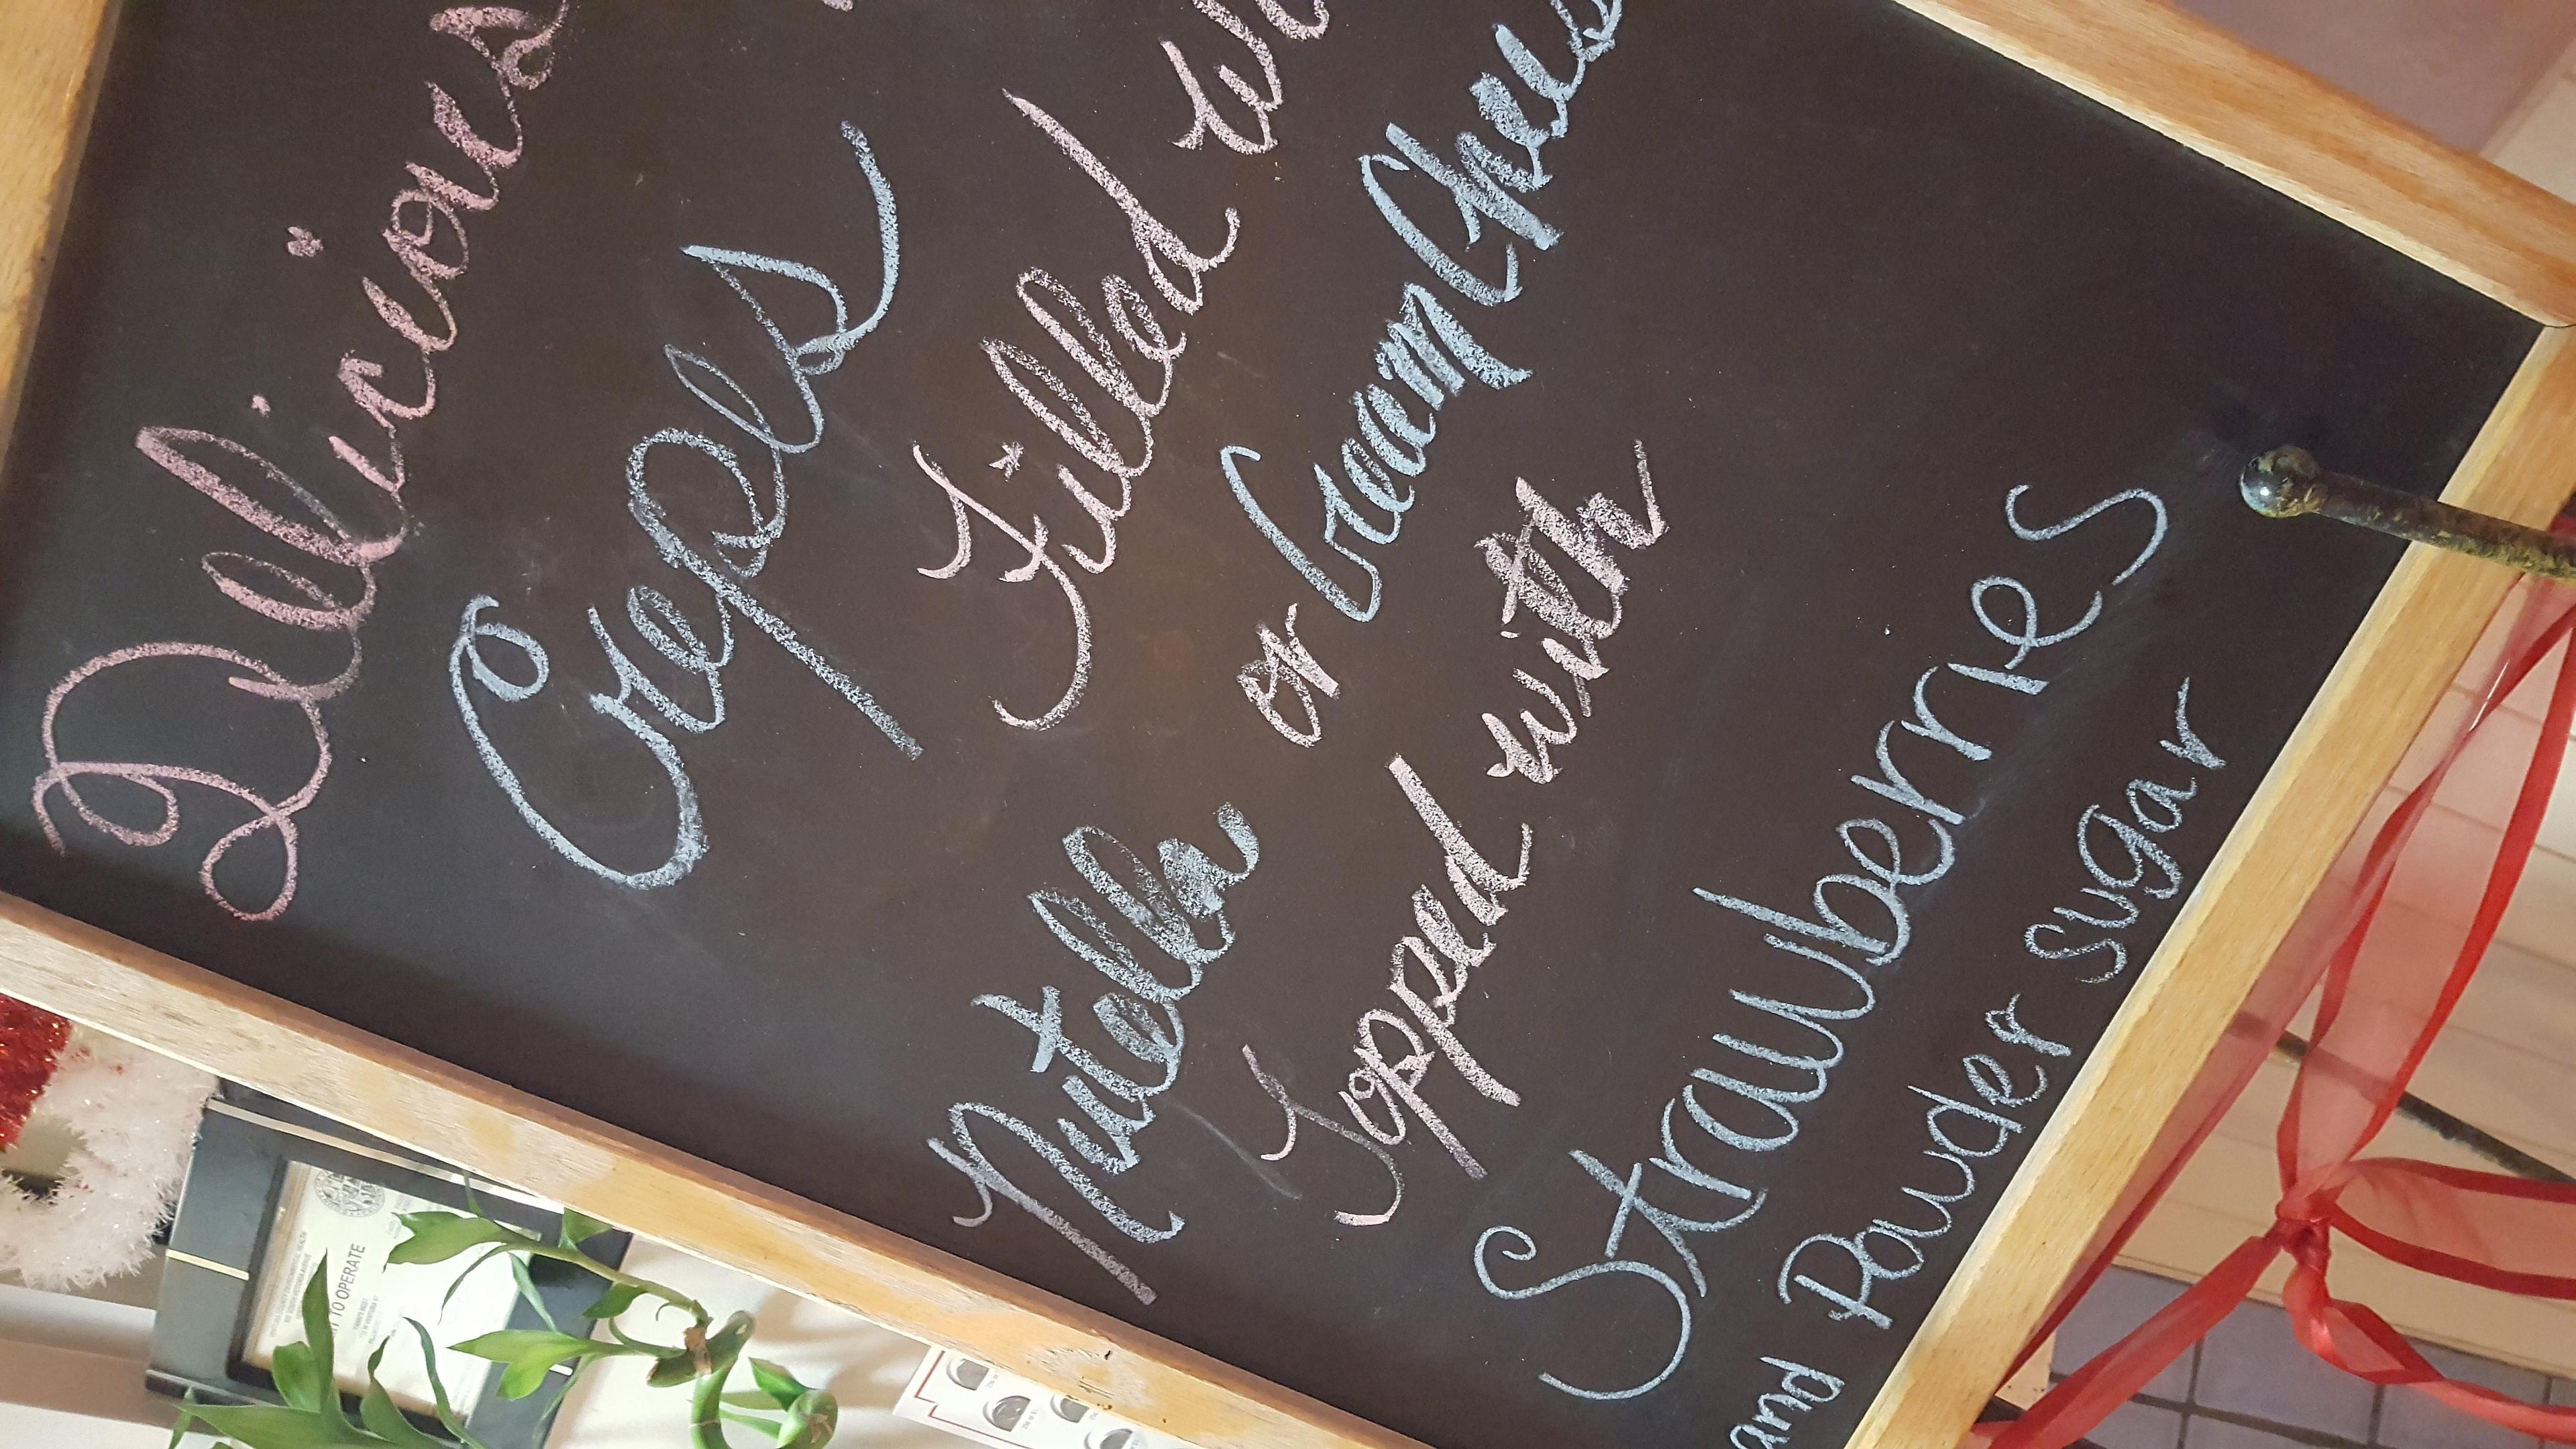 Delicious
Creples
Filled wi
Nutella or Cream Chees
Topped with
Strawberries
and Powder Sugar
TO OPERATE